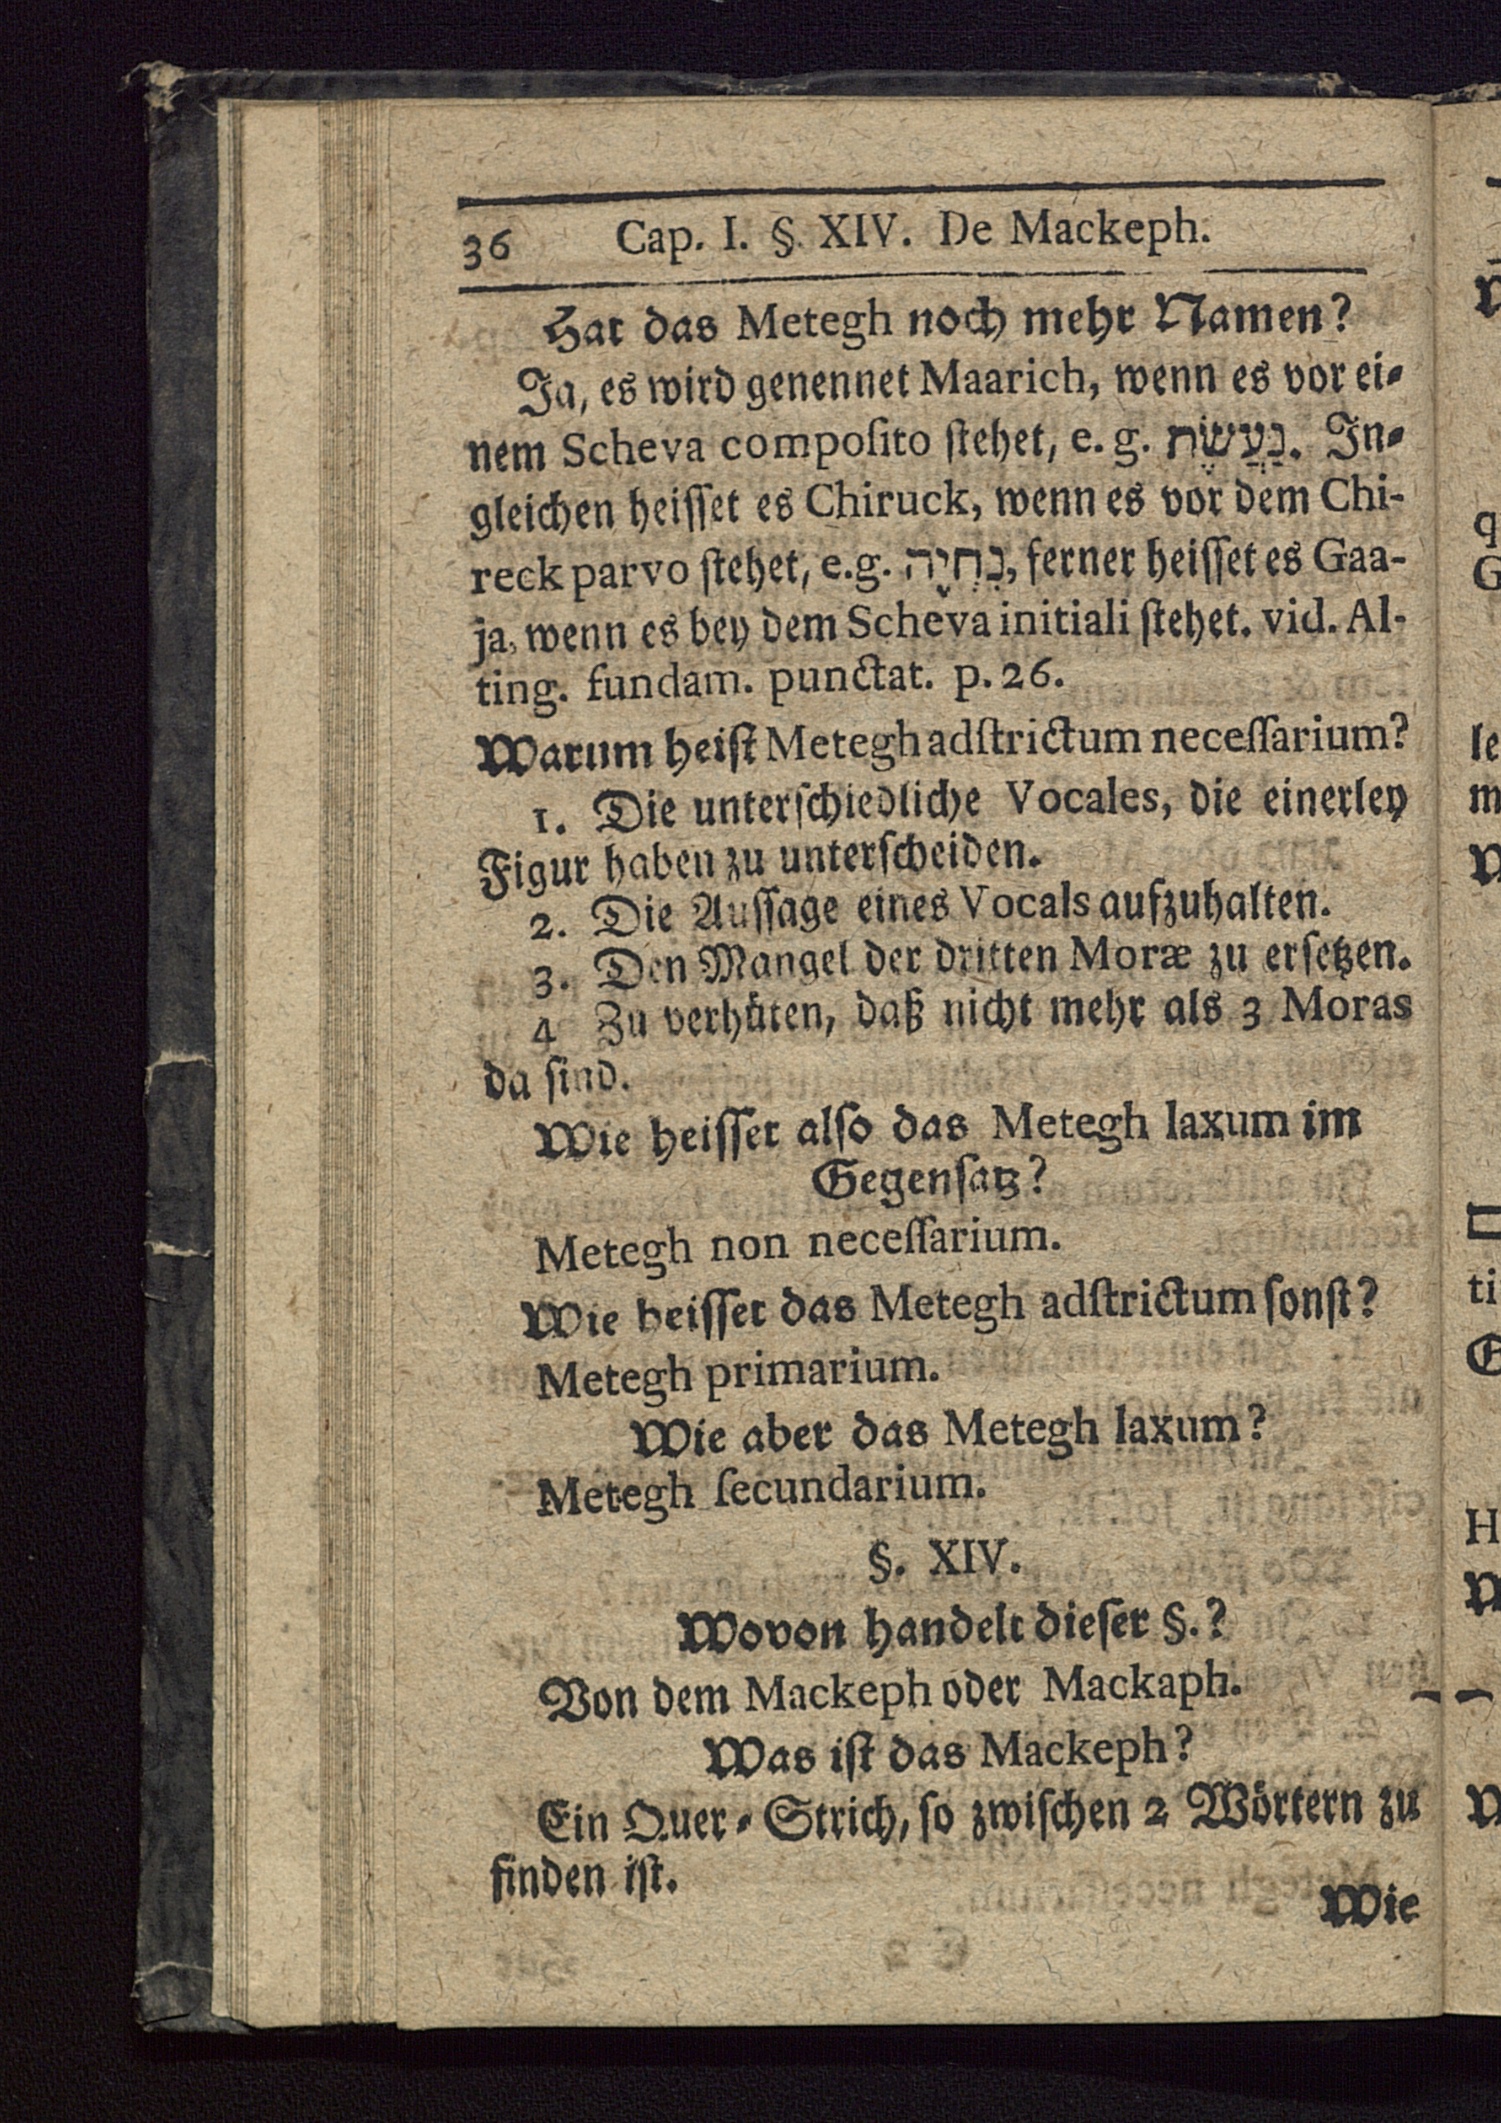 36 Cap. I. §. XIV. De Mackeph.
Hat das Metegh noch mehr Namen?
Ja, es wird genennet Maarich, wenn es vor ei-
nem Scheva compoſito ſtehet, e. g. . In-
gleichen heiſſet es Chiruck, wenn es vor dem Chi-
reck parvo ſtehet, e.g. , ferner heiſſet es Gaa-
ja, wenn es bey dem Scheva initiali ſtehet. vid. Al-
ting. fundam. punctat. p. 26.
Warum heiſt Metegh adſtrictum neceſſarium?
1. Die unterſchiedliche Vocales, die einerley
Figur haben zu unterſcheiden.
2. Die Auſſage eines Vocals aufzuhalten.
3. Den Mangel der dritten Moræ zu erſetzen.
4 Zu verhüten, daß nicht mehr als 3 Moras
da ſind.
Wie heiſſet alſo das Metegh laxum im
Gegenſatz?
Metegh non neceſſarium.
Wie heiſſet das Metegh adſtrictum ſonſt?
Metegh primarium.
Wie aber das Metegh laxum?
Metegh ſecundarium.
§. XIV.
Wovon handelt dieſer §.?
Von dem Mackeph oder Mackaph.
Was iſt das Mackeph?
Ein Quer-Strich, ſo zwiſchen 2 Wörtern zu
finden iſt.
Wie